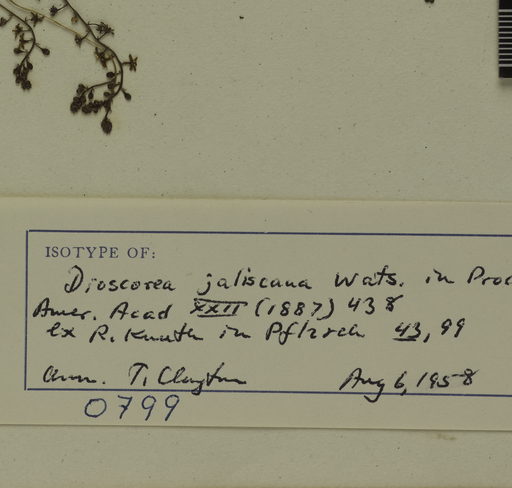 ISOTYPE OF:
Dioscorea jaliscana Wats. in Proc
Amer. Acad XXII (1887) 438
ex R. Knuth in Pflzrch 43, 99
Ann. T. Clayton Aug 6, 1958
0799